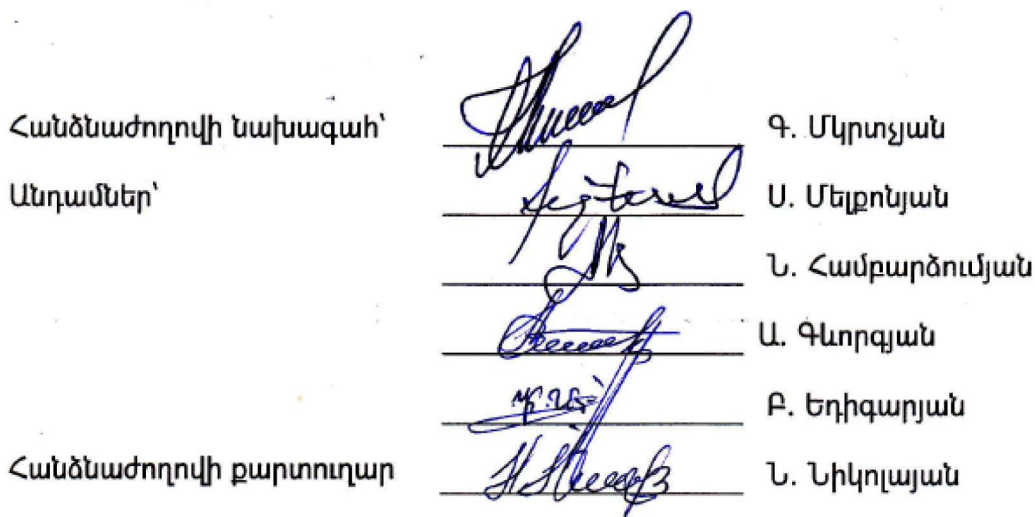 Հանձնաժողովի նախագահ՝ Գ. Մկրտչյան
Անդամներ՝ Ս. Մելքոնյան
Ն. Համբարձումյան
Ա. Գևորգյան
Բ. Եդիգարյան
Հանձնաժողովի քարտուղար Ն. Նիկոլայան